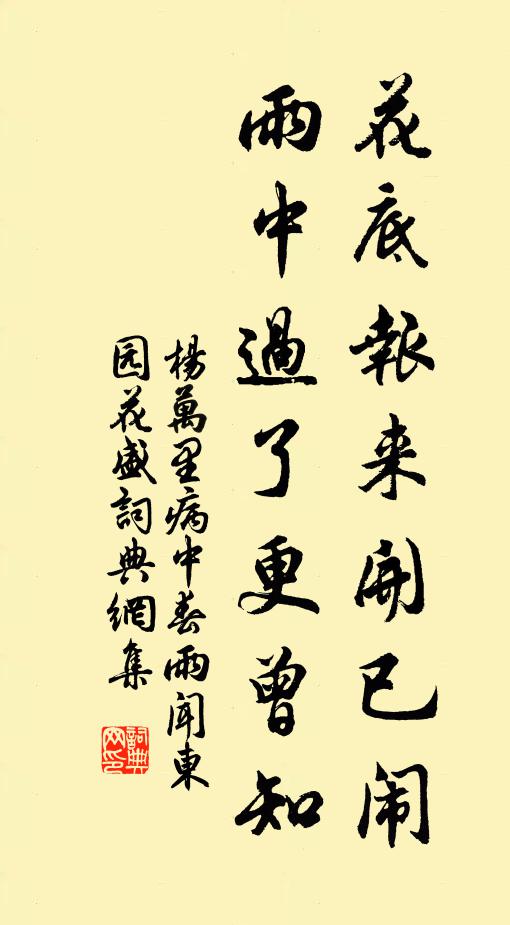 花底報来開已闹
雨中過了更曾知
楊萬里病中春雨聞東
园花盛詞典網集
詞典網印